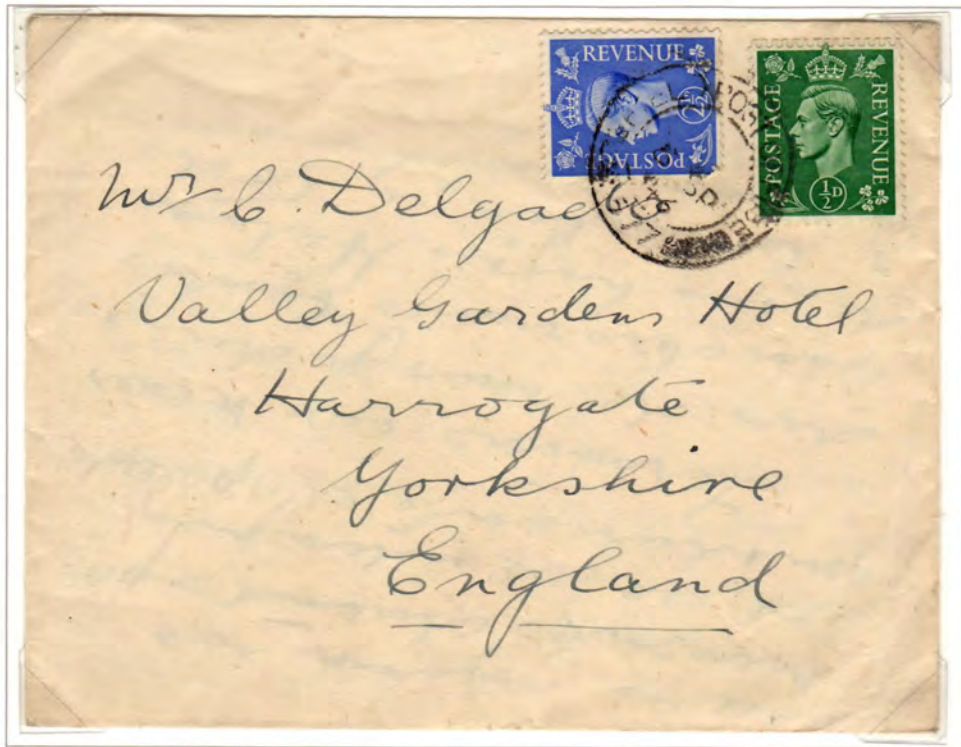 REVENUE
2½D
POSTAGE
POSTAGE
REVENUE
½D
Mr C. Delgad
Valley Gardens Hotel
Harrogate
Yorkshire
England